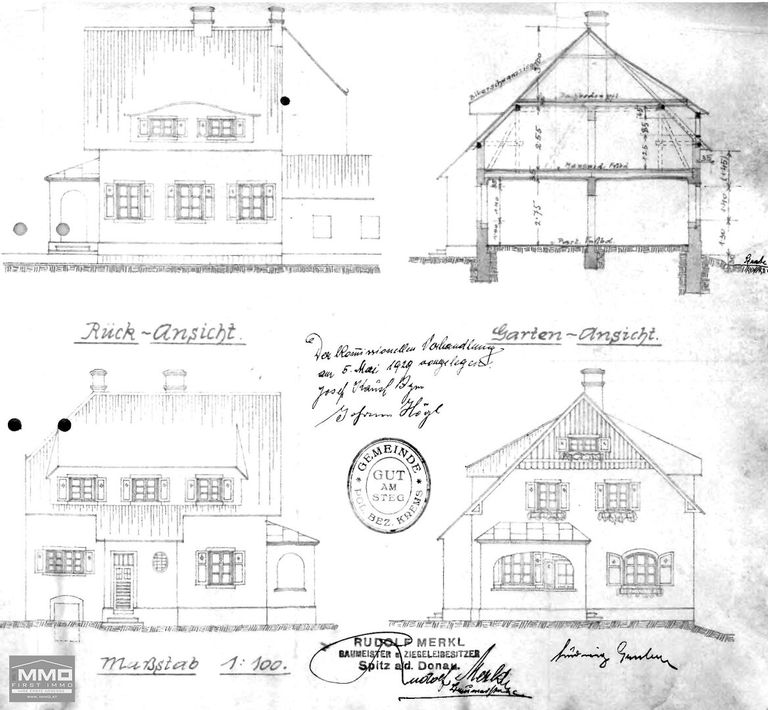 3.00
Dachboden
2.55
1.25
85
45
Mansard Fußbd
35
35
(1.45)
1.40
1.40
90
2.75
1.30
Part. Fußbd
Rück-Ansicht.
Garten-Ansicht.
Der kommissionellen Verhandlung
am 5. Mai 1929 vorgelegen.
Josef
Johann Högl
GEMEINDE
GUT
AM
STEG
POL. BEZ. KREMS
Maßstab 1:100.
RUDOLF MERKL
BAUMEISTER u ZIEGELEIBESITZER
Spitz a.d. Donau.
Rudolf Merkl
Baumeister
Ludwig
MMO
FIRST IMMO
WWW.MMO.AT